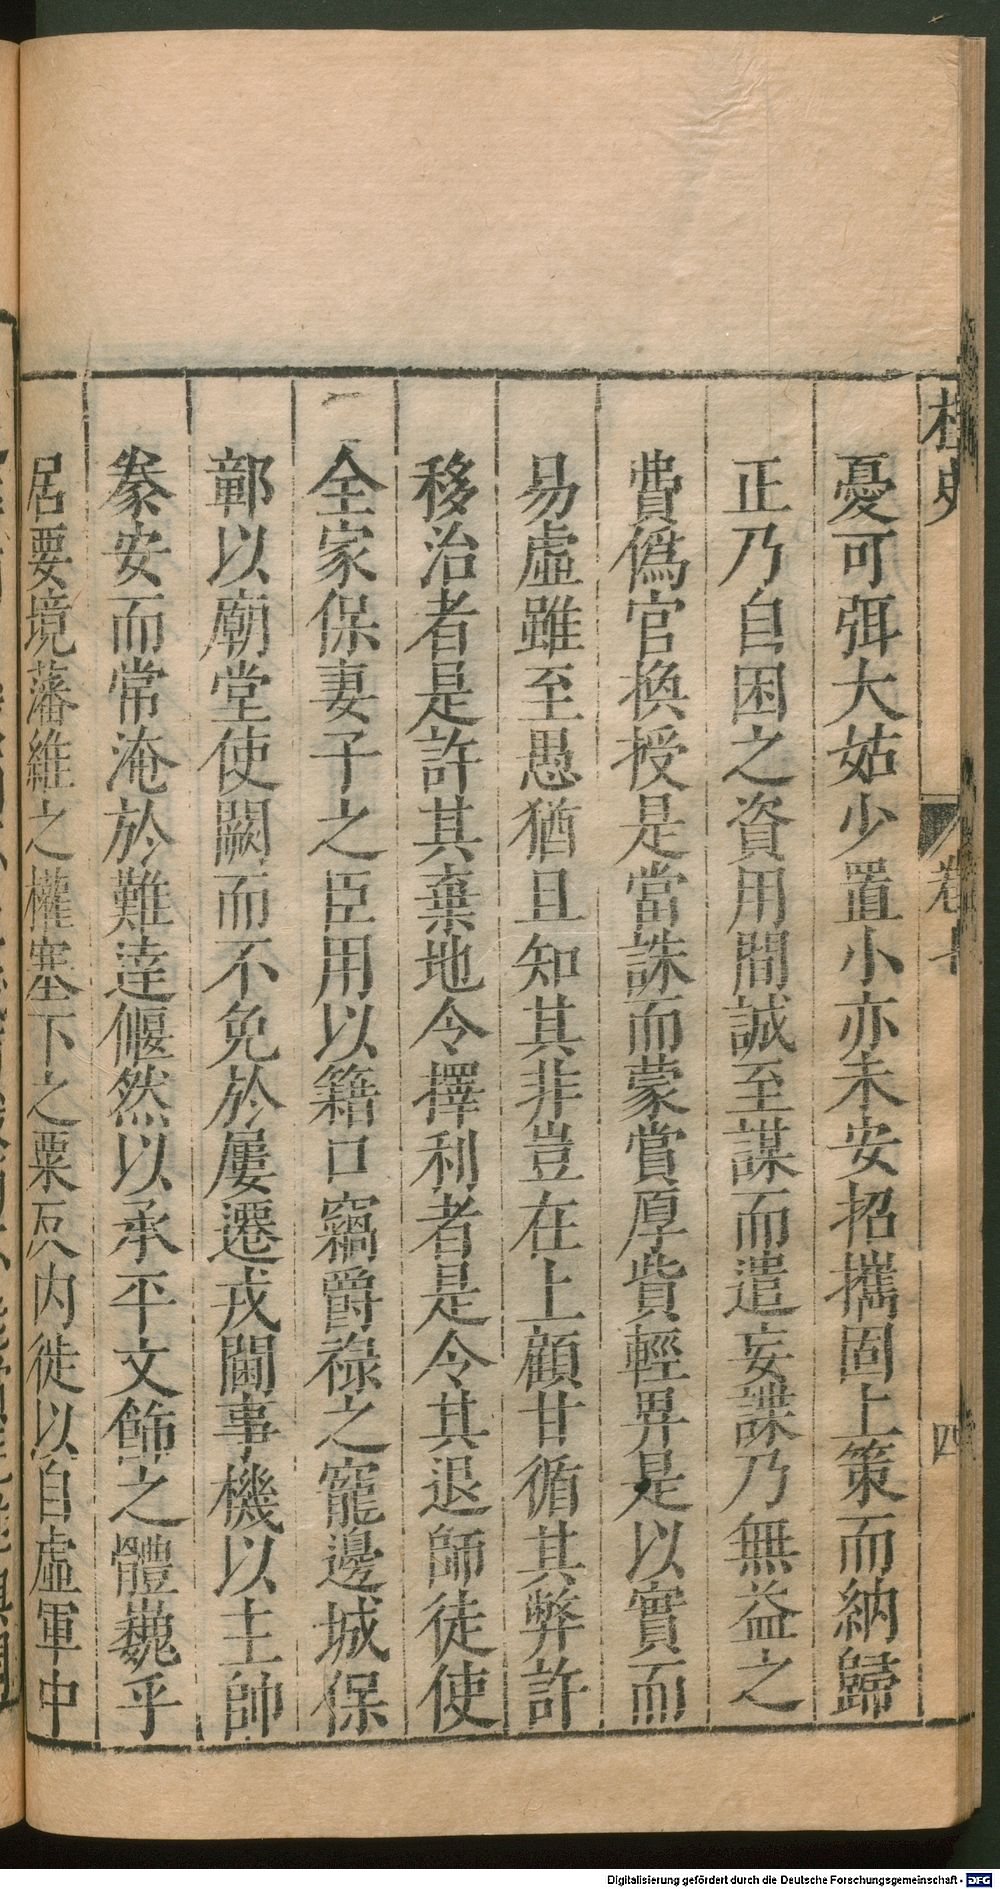 桯史
卷十
四
憂可弭大姑少置小亦未安招攜固上策而納歸
正乃自困之資用間誠至謀而遣妄諜乃無益之
費僞官換授是當誅而蒙賞厚貲輕畀是以實而
易虛雖至愚猶且知其非豈在上顧甘循其弊許
移治者是許其棄地令擇利者是令其退師徒使
全家保妻子之臣用以籍口竊爵祿之寵邊城保
鄣以廟堂使闕而不免於屢遷戎閫事機以主帥
豢安而常淹於難達偃然以承平文飾之體巍乎
居要境藩維之權塞下之粟反内徙以自虛軍中
Digitalisierung gefördert durch die Deutsche Forschungsgemeinschaft - DFG